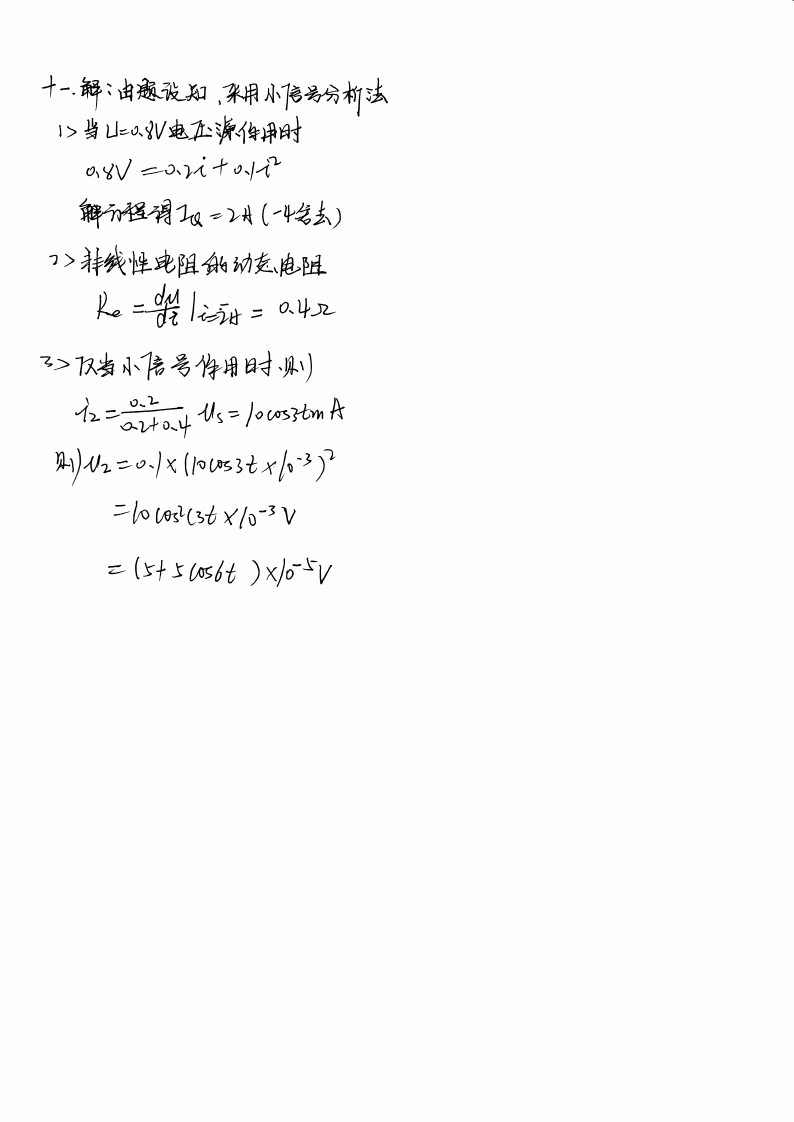 十一.解:由题设知,采用小信号分析法
1> 当U=0.8V电压源作用时
0.8V = 0.2i + 0.1i²
解方程得 I_Q = 2A (-4舍去)
2> 非线性电阻的动态电阻
Re = du/di |i=2A = 0.4Ω
3> 仅当小信号作用时,则
i₂ = 0.2/(0.2+0.4) us = 10cos3t mA
则 u₂ = 0.1×(10cos3t×10⁻³)²
= 10cos²(3t×10⁻³V
= (5+5cos6t )×10⁻⁵V